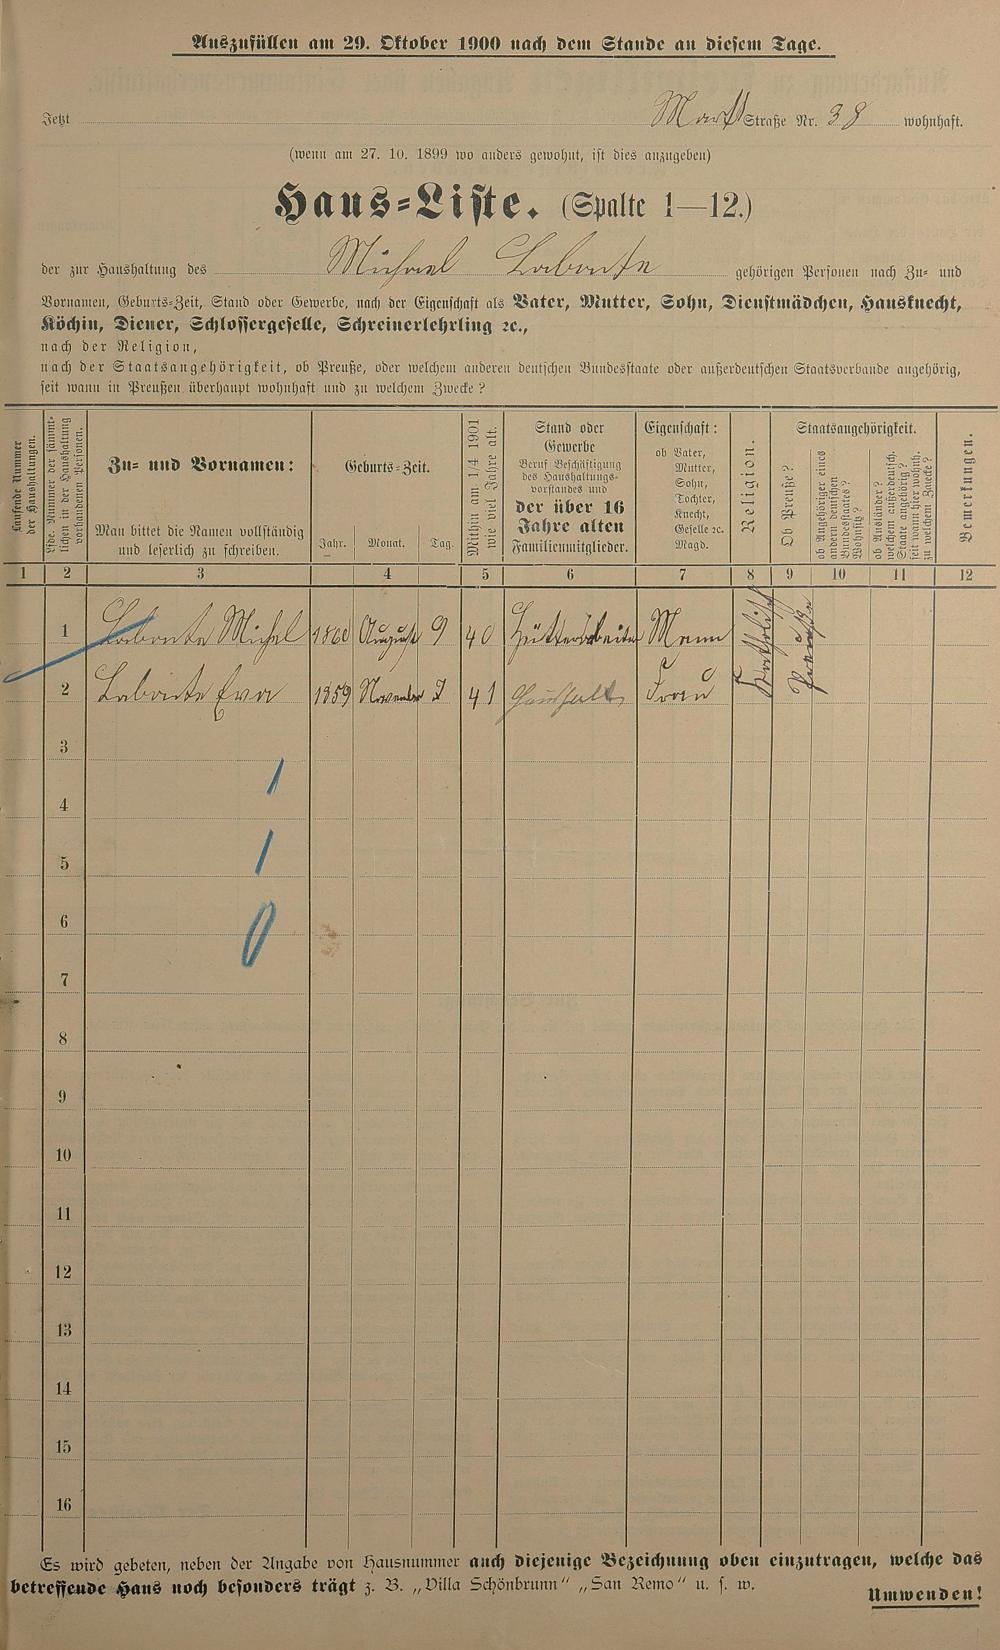 Auszufüllen am 29. Oktober 1900 nach dem Stande an diesem Tage.
Jetzt Markt Straße Nr. 38 wohnhaft.
(wenn am 27. 10. 1899 wo anders gewohnt, ist dies anzugeben)
Haus-Liste. (Spalte 1—12.)
der zur Haushaltung des Michael Labonte gehörigen Personen nach Zu- und
Vornamen, Geburts-Zeit, Stand oder Gewerbe, nach der Eigenschaft als Vater, Mutter, Sohn, Dienstmädchen, Hausknecht,
Köchin, Diener, Schlossergeselle, Schreinerlehrling ꝛc.,
nach der Religion,
nach der Staatsangehörigkeit, ob Preuße, oder welchem anderen deutschen Bundesstaate oder außerdeutschen Staatsverbande angehörig,
seit wann in Preußen überhaupt wohnhaft und zu welchem Zwecke?
Laufende Nummer
der Haushaltungen.
Lfde. Nummer der sämmt-
lichen in der Haushaltung
vorhandenen Personen.
Zu- und Vornamen:
Man bittet die Namen vollständig
und leserlich zu schreiben.
Geburts-Zeit.
Jahr. Monat. Tag.
Mithin am 1/4 1901
wie viel Jahre alt.
Stand oder
Gewerbe
Beruf Beschäftigung
des Haushaltungs-
vorstandes und
der über 16
Jahre alten
Familienmitglieder.
Eigenschaft:
ob Vater,
Mutter,
Sohn,
Tochter,
Knecht,
Geselle ꝛc.
Magd.
Religion.
Staatsangehörigkeit.
Ob Preuße?
ob Angehöriger eines
andern deutschen
Bundesstaates?
Wohnsitz?
ob Ausländer?
welchem außerdeutsch.
Staate angehörig?
seit wann hier wohnh.
zu welchem Zwecke?
Bemerkungen.
1 2 3 4 5 6 7 8 9 10 11 12
1 Labonte Michel 1860 August 9 40 Hüttenarbeiter Mann Katholisch Preuße
2 Labonte Eva 1859 November 2 41 Haushalt Frau
3
4
5
6
7
8
9
10
11
12
13
14
15
16
1
1
0
Es wird gebeten, neben der Angabe von Hausnummer auch diejenige Bezeichnung oben einzutragen, welche das
betreffende Haus noch besonders trägt z. B. „Villa Schönbrunn" „San Remo" u. s. w.
Umwenden!